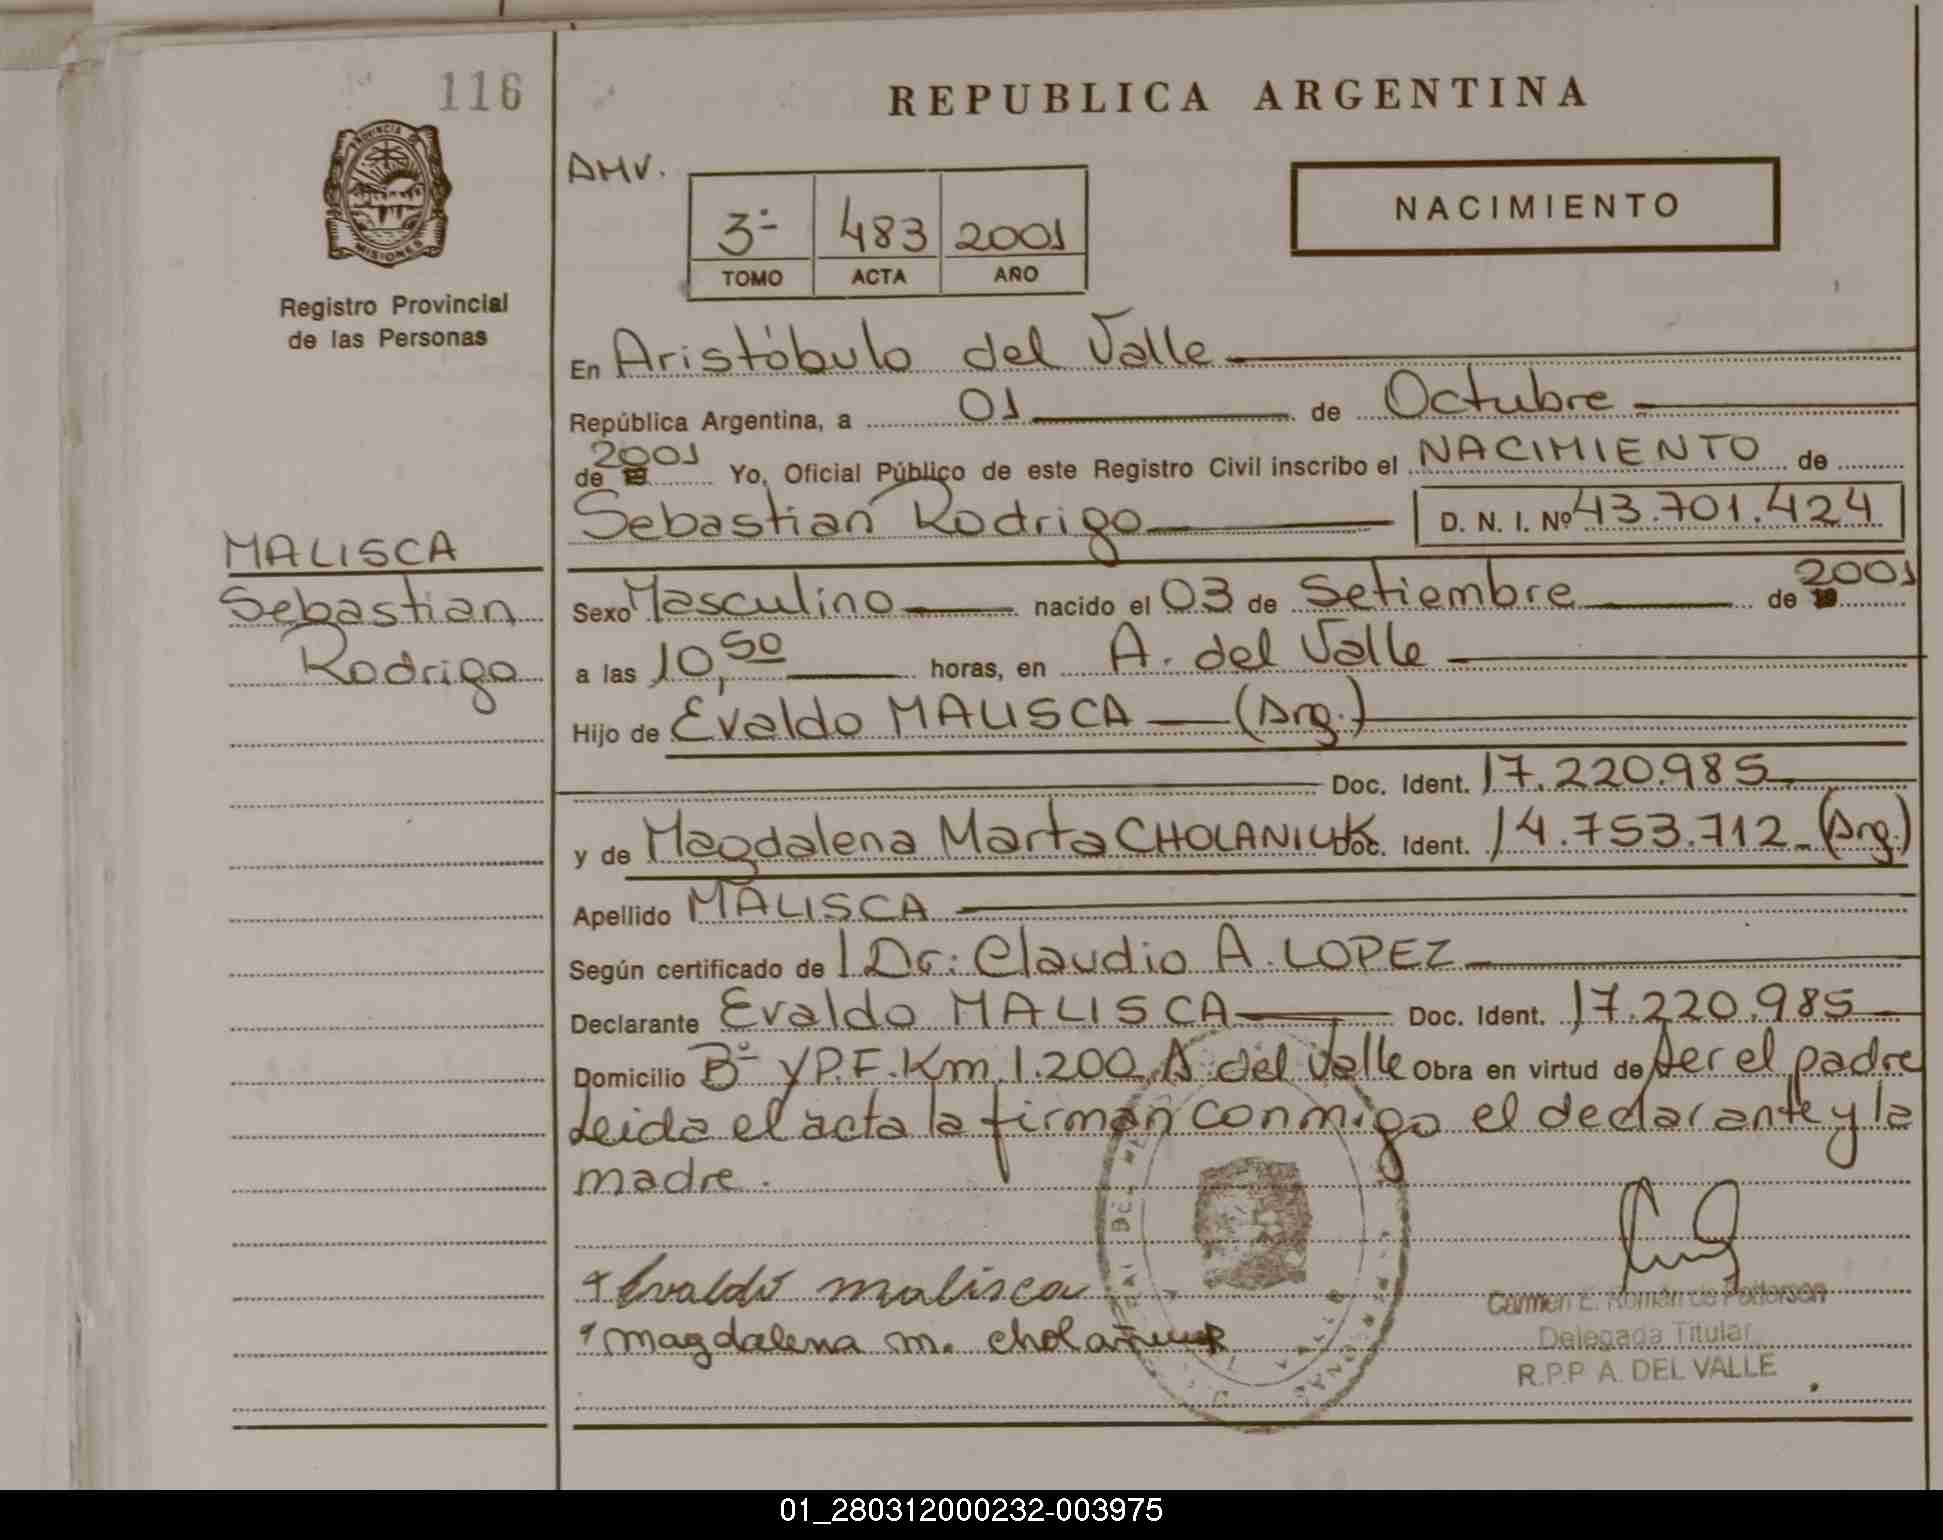 116
REPUBLICA ARGENTINA
PROVINCIA DE
MISIONES
Registro Provincial
de las Personas
AMV.
3º 483 2001
TOMO ACTA AÑO
NACIMIENTO
En Aristóbulo del Valle
República Argentina, a 01 de Octubre
de 2001 Yo, Oficial Público de este Registro Civil inscribo el NACIMIENTO de
Sebastian Rodrigo D. N. I. Nº 43.701.424
MALISCA
Sebastian
Rodrigo
Sexo Masculino nacido el 03 de Setiembre de 2001
a las 10,50 horas, en A. del Valle
Hijo de Evaldo MALISCA (Arg.)
Doc. Ident. 17.220.985
y de Magdalena Marta CHOLANIUK Doc. Ident. 14.753.712 (Arg.)
Apellido MALISCA
Según certificado de Dr: Claudio A. LOPEZ
Declarante Evaldo MALISCA Doc. Ident. 17.220.985
Domicilio Bº Y.P.F. Km 1.200 A. del Valle Obra en virtud de ser el padre
Leida el acta la firman conmigo el declarante y la
madre.
Evaldo malisca
magdalena m.
Carmen E. Román de
Delegada Titular
R.P.P A. DEL VALLE
01_280312000232-003975